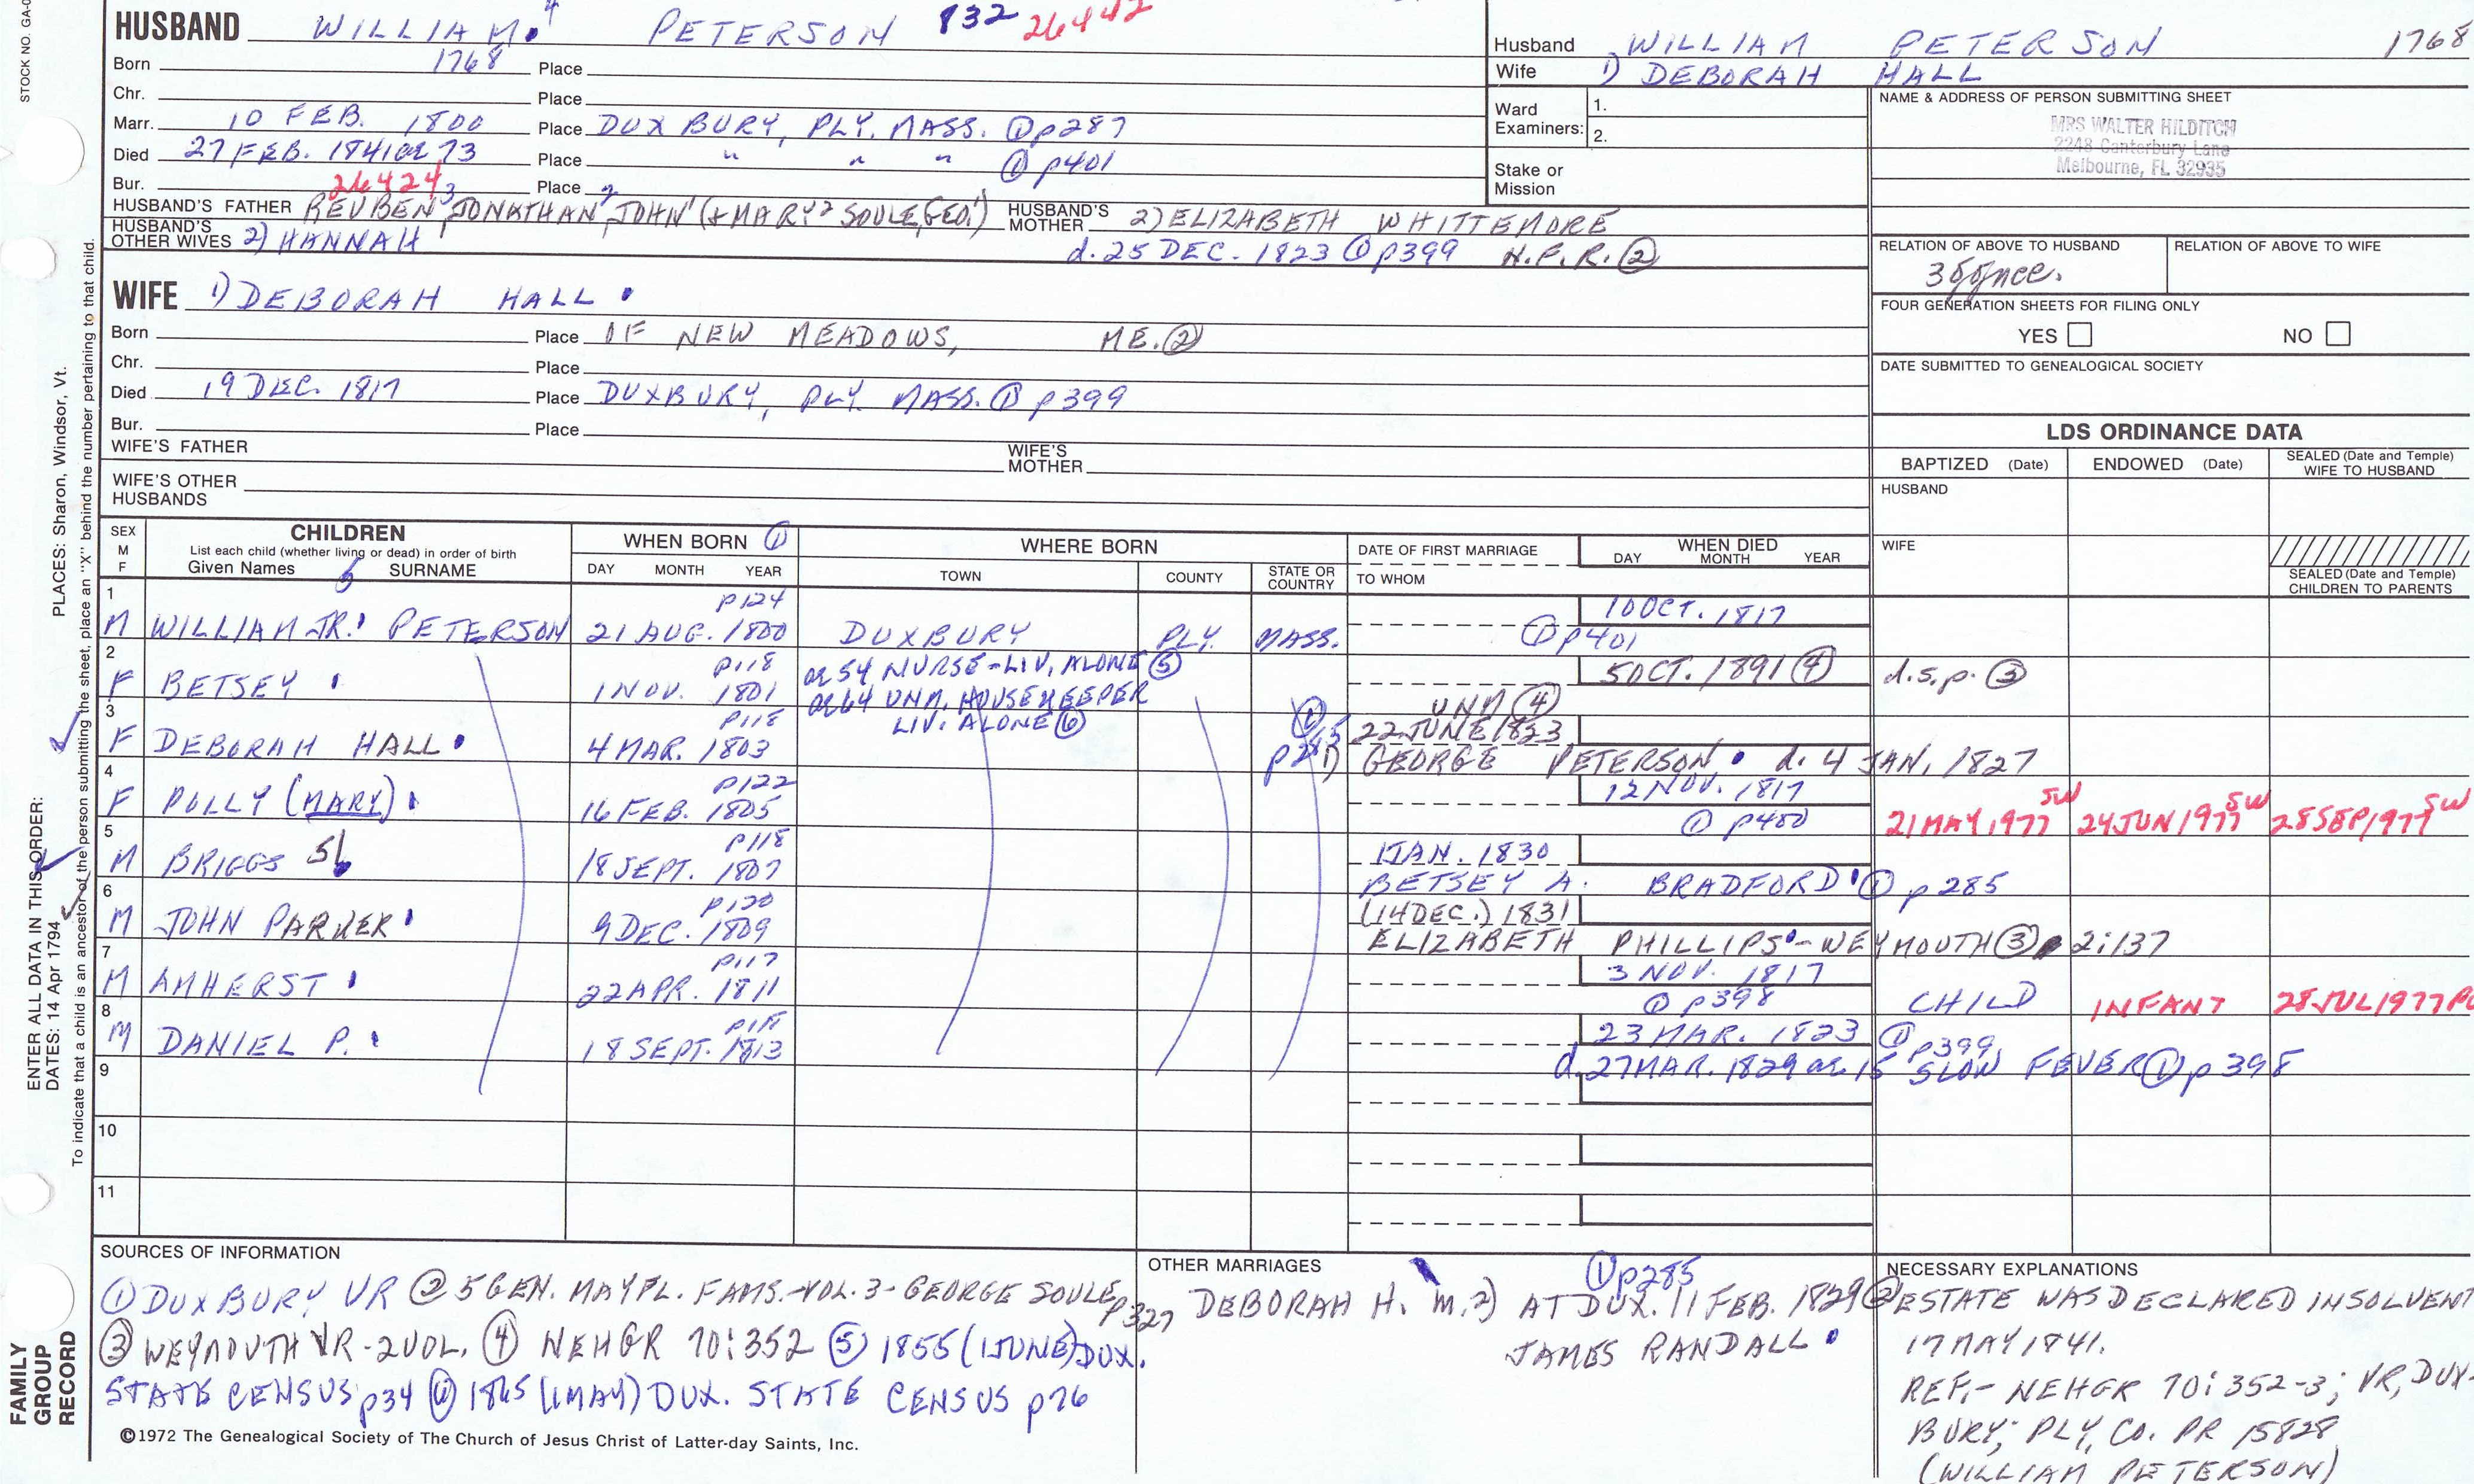 STOCK NO. GA-0
HUSBAND WILLIAM 4 PETERSON 832 26442
Born 1768 Place
Chr. Place
Marr. 10 FEB. 1800 Place DUXBURY, PLY. MASS. ① p287
Died 27 FEB. 1841 ae 73 Place " " " ① p401
Bur. Place
26424
HUSBAND'S FATHER REUBEN 3 JONATHAN 2 JOHN 1 (+ MARY 2 SOULE, GEO. 1) HUSBAND'S MOTHER 2) ELIZABETH WHITTEMORE
HUSBAND'S OTHER WIVES 2) HANNAH d. 25 DEC. 1823 ① p399 N.P.R. ②
WIFE 1) DEBORAH HALL
Born Place OF NEW MEADOWS, ME. ②
Chr. Place
Died 19 DEC. 1817 Place DUXBURY, PLY. MASS. ① p399
Bur. Place
WIFE'S FATHER WIFE'S MOTHER
WIFE'S OTHER HUSBANDS
Husband WILLIAM PETERSON 1768
Wife 1) DEBORAH HALL
Ward Examiners: 1.
2.
Stake or Mission
NAME & ADDRESS OF PERSON SUBMITTING SHEET
MRS WALTER HILDITCH
2248 Canterbury Lane
Melbourne, FL 32935
RELATION OF ABOVE TO HUSBAND RELATION OF ABOVE TO WIFE
FOUR GENERATION SHEETS FOR FILING ONLY
YES NO
DATE SUBMITTED TO GENEALOGICAL SOCIETY
LDS ORDINANCE DATA
BAPTIZED (Date) ENDOWED (Date) SEALED (Date and Temple) WIFE TO HUSBAND
HUSBAND
WIFE
SEALED (Date and Temple) CHILDREN TO PARENTS
SEX M F CHILDREN WHEN BORN ① WHERE BORN DATE OF FIRST MARRIAGE WHEN DIED
List each child (whether living or dead) in order of birth
Given Names 5 SURNAME DAY MONTH YEAR TOWN COUNTY STATE OR COUNTRY TO WHOM DAY MONTH YEAR
1 p124 10 OCT. 1817
M WILLIAM JR. PETERSON 21 AUG. 1800 DUXBURY PLY. MASS. ① p401
2 p118 ae 54 NURSE-LIV. ALONE ⑤ 5 OCT. 1891 ④ d.s.p. ③
F BETSEY 1 NOV. 1801 ae 64 UNM. HOUSEKEEPER UNM ④
3 p118 LIV. ALONE ⑥ ① 22 JUNE 1823
F DEBORAH HALL 4 MAR. 1803 p285 1) GEORGE PETERSON d. 4 JAN. 1827
4 p122 12 NOV. 1817
F POLLY (MARY) 16 FEB. 1805 ① p400 21 MAY 1977 SW 24 JUN 1977 SW 28 SEP 1977 SW
5 p118 1 JAN. 1830
M BRIGGS 18 SEPT. 1807 BETSEY A. BRADFORD ① p285
6 p120 (14 DEC.) 1831
M JOHN PARKER 9 DEC. 1809 ELIZABETH PHILLIPS - WEYMOUTH ③ 2:137
7 p117 3 NOV. 1817
M AMHERST 22 APR. 1811 ① p398 CHILD INFANT 28 JUL 1977
8 23 MAR. 1823 ① p399
M DANIEL P. 18 SEPT. 1813 d. 27 MAR. 1829 ae 15 SLOW FEVER ① p398
9
10
11
SOURCES OF INFORMATION
① DUXBURY VR ② 5 GEN. MAYFL. FAMS.-VOL. 3-GEORGE SOULE p327
③ WEYMOUTH VR-2 VOL. ④ NEHGR 70:352 ⑤ 1855 (1 JUNE) DUX.
STATE CENSUS p34 ⑥ 1865 (1 MAY) DUX. STATE CENSUS p26
OTHER MARRIAGES
① p285
DEBORAH H. m. 2) AT DUX. 11 FEB. 1829
JAMES RANDALL
NECESSARY EXPLANATIONS
② ESTATE WAS DECLARED INSOLVENT
17 MAY 1841.
REF.- NEHGR 70:352-3; VR, DUX-
BURY; PLY. CO. PR 15828
(WILLIAM PETERSON)
©1972 The Genealogical Society of The Church of Jesus Christ of Latter-day Saints, Inc.
FAMILY GROUP RECORD
ENTER ALL DATA IN THIS ORDER:
DATES: 14 Apr 1794
PLACES: Sharon, Windsor, Vt.
To indicate that a child is an ancestor of the person submitting the sheet, place an "X" behind the number pertaining to that child.